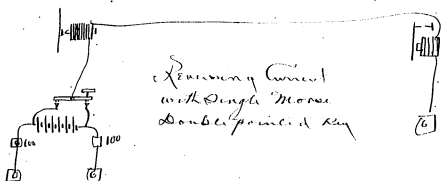 Reversing Current
with Single Morse
Double pointed Key
100 100
G
G